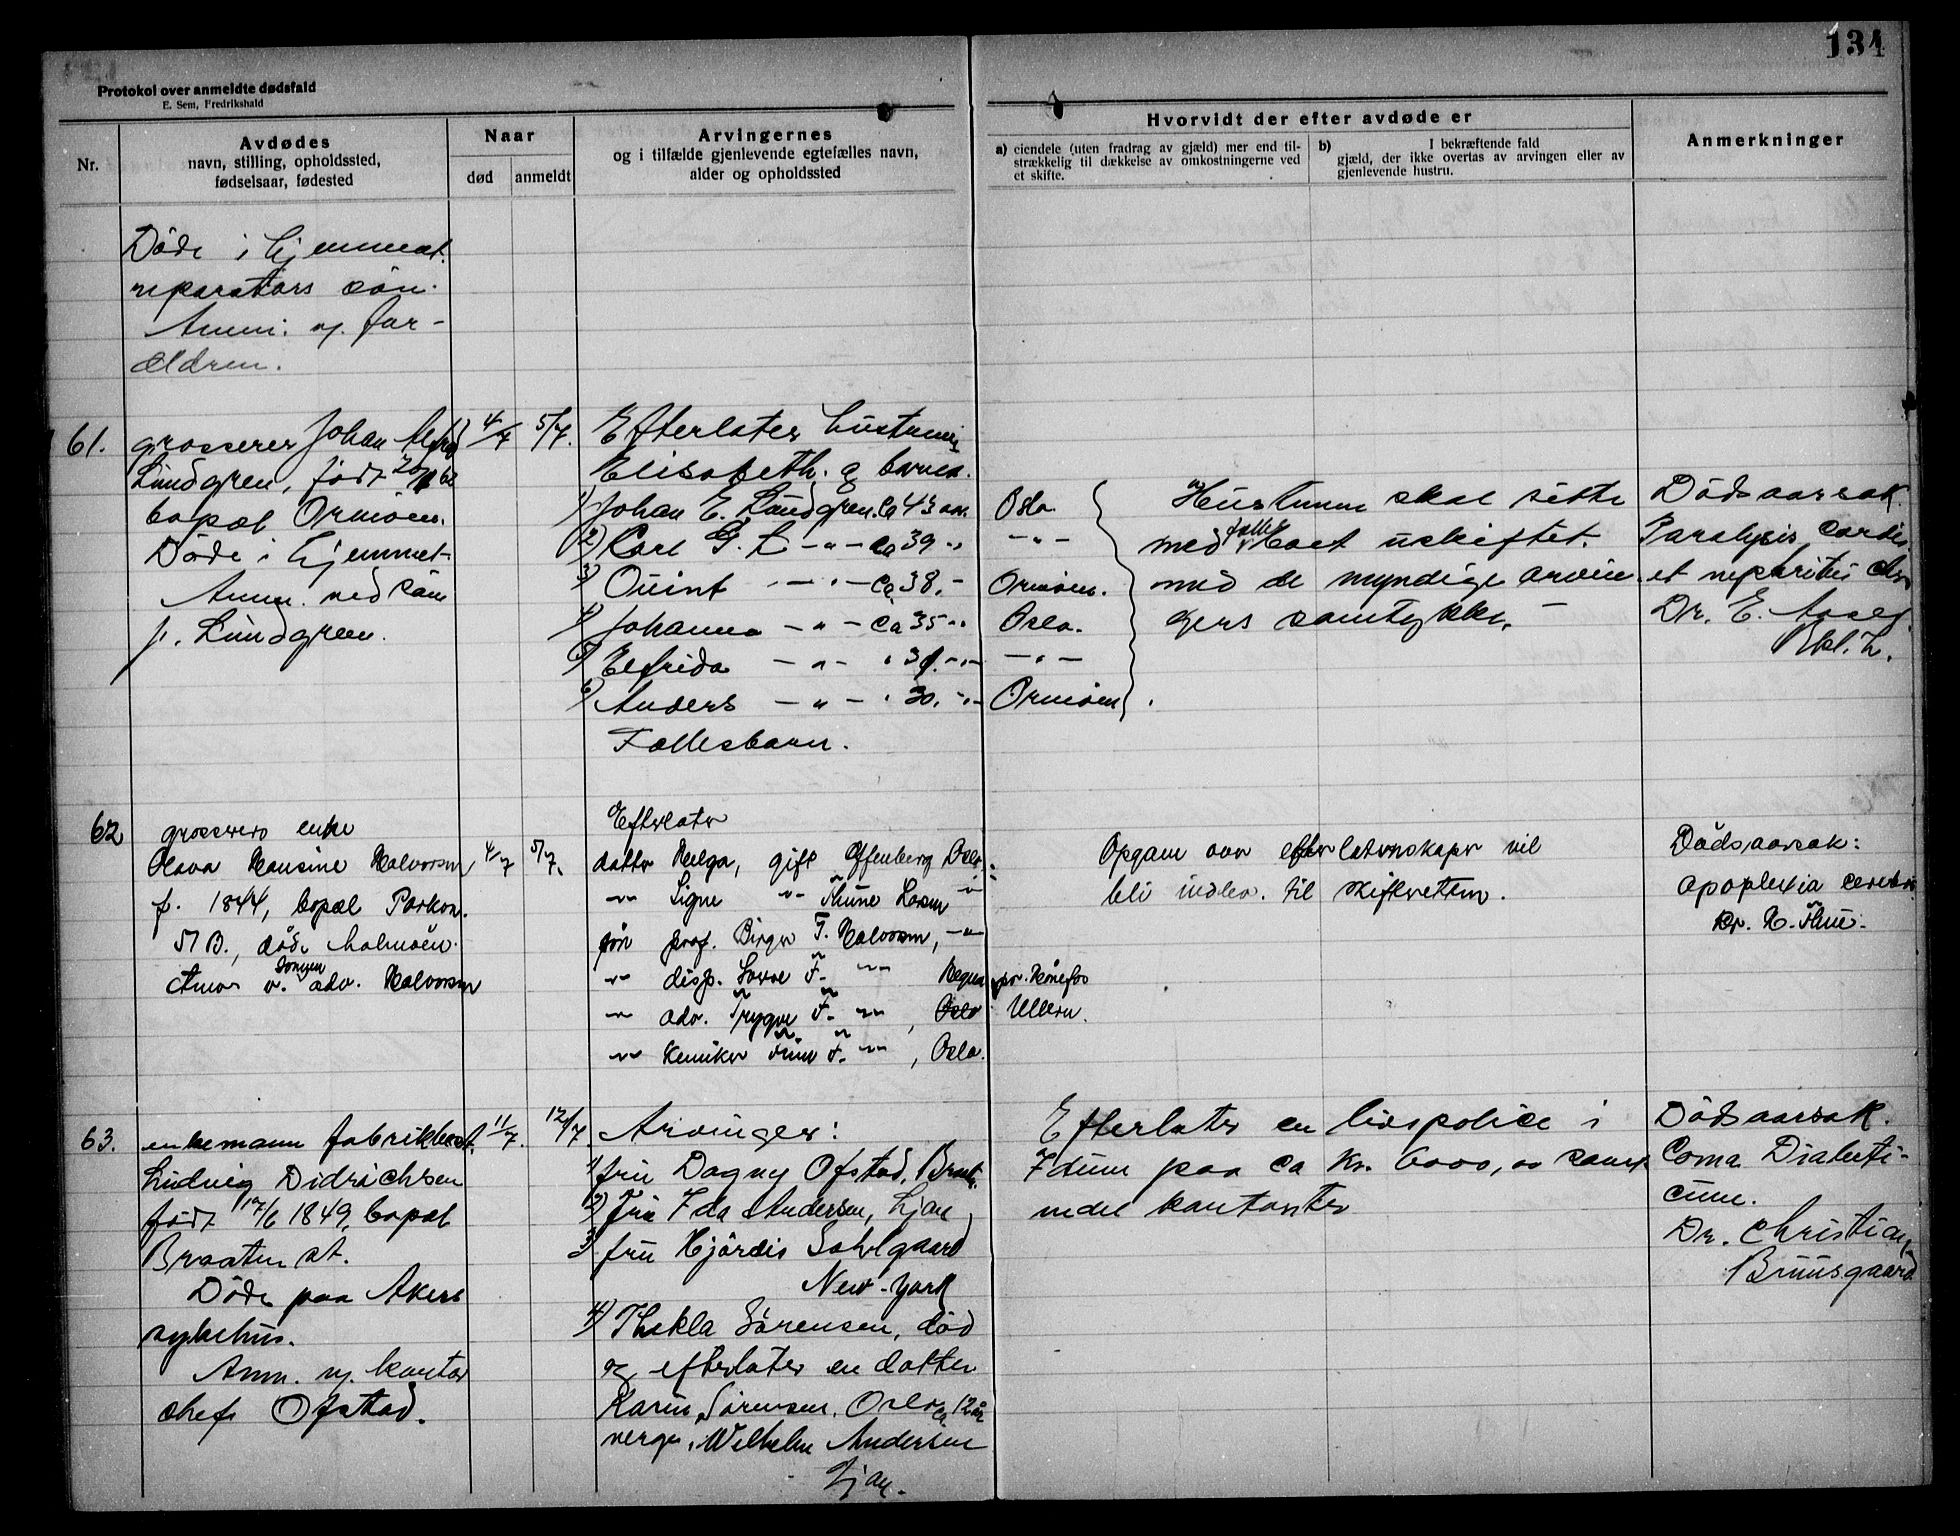 134
Protokol over anmeldte dødsfald
E. Sem, Fredrikshald
Nr.
Avdødes
navn, stilling, opholdssted,
fødselsaar, fødested
Naar
død
anmeldt
Arvingernes
og i tilfælde gjenlevende egtefælles navn,
alder og opholdssted
Hvorvidt der efter avdøde er
a) eiendele (uten fradrag av gjæld) mer end til-
strækkelig til dækkelse av omkostningerne ved
et skifte.
b) I bekræftende fald
gjæld, der ikke overtas av arvingen eller av
gjenlevende hustru.
Anmerkninger
Døde i hjemmet.
reparatørs søn.
Anm. v. for-
ældren.
61.
grosserer Johan Alfred
Lundgren, født
bopæl Ormøen.
Døde i hjemmet-
Anm. ved søn
J. Lundgren.
4/7
5/7.
Efterlater hustruen
Elisabeth. og barna.
1) Johan E. Lundgren. ca 43 aar. Oslo.
2) Carl G. L - " - ca 39 - " - " -
3) Quint - " - ca 38. - Ormøen.
4) Johanna - " - ca 35 - " Oslo.
5) Elfrida - " - " 31. - " - - " -
6) Anders - " - " 30. - " - Ormøen.
Fællesbarn.
Hustruen skal sitte
med fælles boet uskiftet.
med de myndige arvin-
gers samtykke. -
Dødsaarsak.
Paralysis cordis
et nephritis chr.
Dr. E. Aaser
Bkl. L.
62
grosserers enke
Olava Hansine Halvorsen
f. 1844, bopæl Parkvn.
51 B., døde Malmøen.
Anm. v. sønnen adv. Halvorsen
4/7
5/7.
Efterlater
datter Helga, gift Offenberg Oslo.
" Signe " Thune Larsen "
søn prof. Birger F. Halvorsen, - " -
" disp. Sverre F. " Begna pr. Hønefos
" adv. Trygve F. " , Oslo Ullern.
" kemiker Finn F. " , Oslo.
Opgave over efterlatenskaper vil
bli indlev. til skifteretten.
Dødsaarsak:
apoplexia cerebri
Dr. H. Thue.
63.
enkemann fabrikbest.
Ludvig Didrichsen
født 17/6 1849, bopæl
Braaten st.
Døde paa Akers
sykehus.
Anm. v. kontor
chef Ofstad.
11/7.
12/7.
Arvinger:
1) fru Dagny Ofstad, Braat.
2) Fru Ida Andersen, Ljan
3. fru Hjørdis Sohlgaard
New-York
4) Thekla Sørensen, død
og efterlater en datter
Karin Sørensen. Oslo ca 12 år
verge, Wilhelm Andersen
Ljan.
Efterlater en livspolice i
Idun paa ca kr. 6000, og samt
indl kontanter
Dødsaarsak.
Coma Diabeti-
cum.
Dr. Christian
Bruusgaard